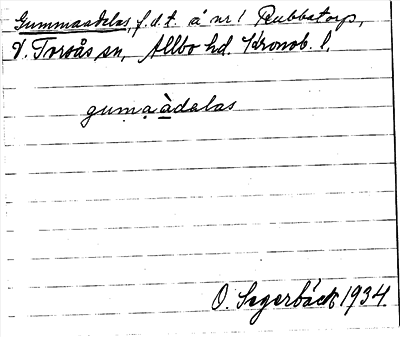 Gummaadelas, f.d.t. å nr 1 Rubbatorp,
V. Torsås sn, Allbo hd. Kronob. l.
gumạàdalas
O. Segerbäck 1934.